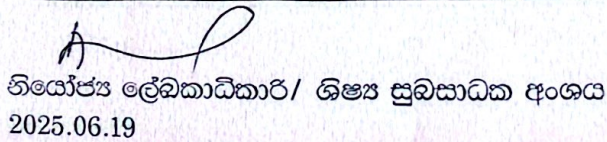 නියෝජ්‍ය ලේඛකාධිකාරි/ ශිෂ්‍ය සුබසාධක අංශය
2025.06.19